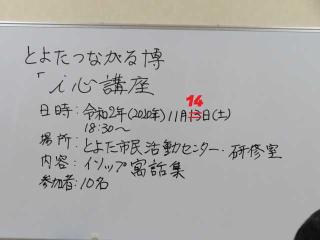 とよたつながる博
「i心講座
14
日時:令和2年(2020年)11月15日(土)
18:30~
場所:とよた市民活動センター・研修室
内容:イソップ寓話集
参加者:10名